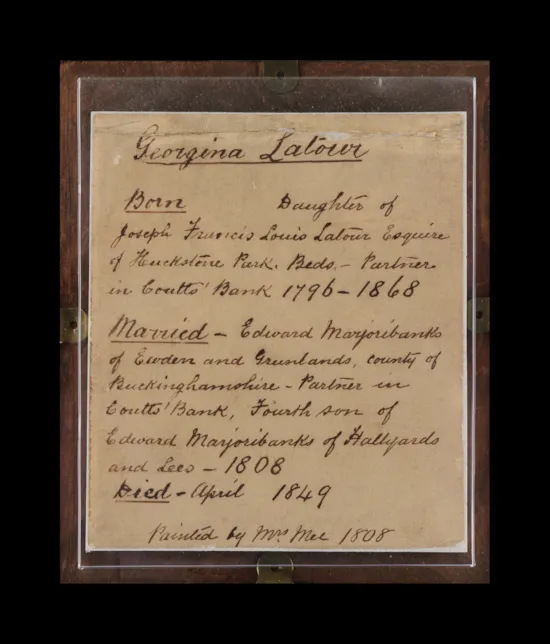 Georgina Latour
Born Daughter of
Joseph Francis Louis Latour Esquire
of Huckstone Park. Beds. - Partner
in Coutts' Bank 1796-1868
Married - Edward Marjoribanks
of Ewden and Grunlands, county of
Buckinghamshire - Partner in
Coutts' Bank, Fourth son of
Edward Marjoribanks of Hallyards
and Lees - 1808
Died - April 1849
Painted by Mrs Mee 1808